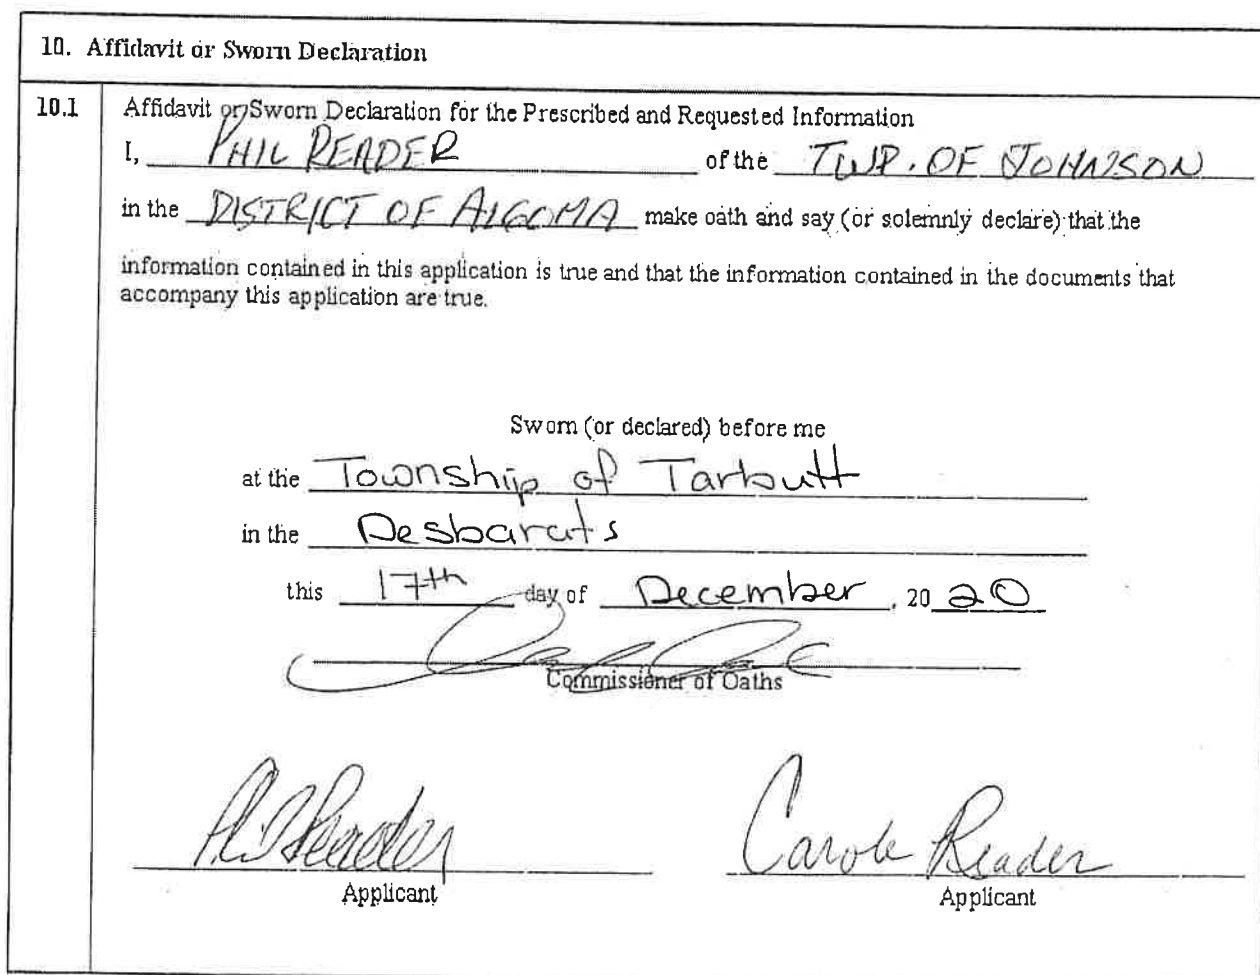 10. Affidavit or Sworn Declaration
10.1 Affidavit or Sworn Declaration for the Prescribed and Requested Information
I, PHIL READER of the TWP. OF JOHNSON
in the DISTRICT OF ALGOMA make oath and say (or solemnly declare) that the
information contained in this application is true and that the information contained in the documents that
accompany this application are true.
Sworn (or declared) before me
at the Township of Tarbutt
in the Desbarats
this 17th day of December, 20 20
Commissioner of Oaths
Phil Reader Carole Reader
Applicant Applicant